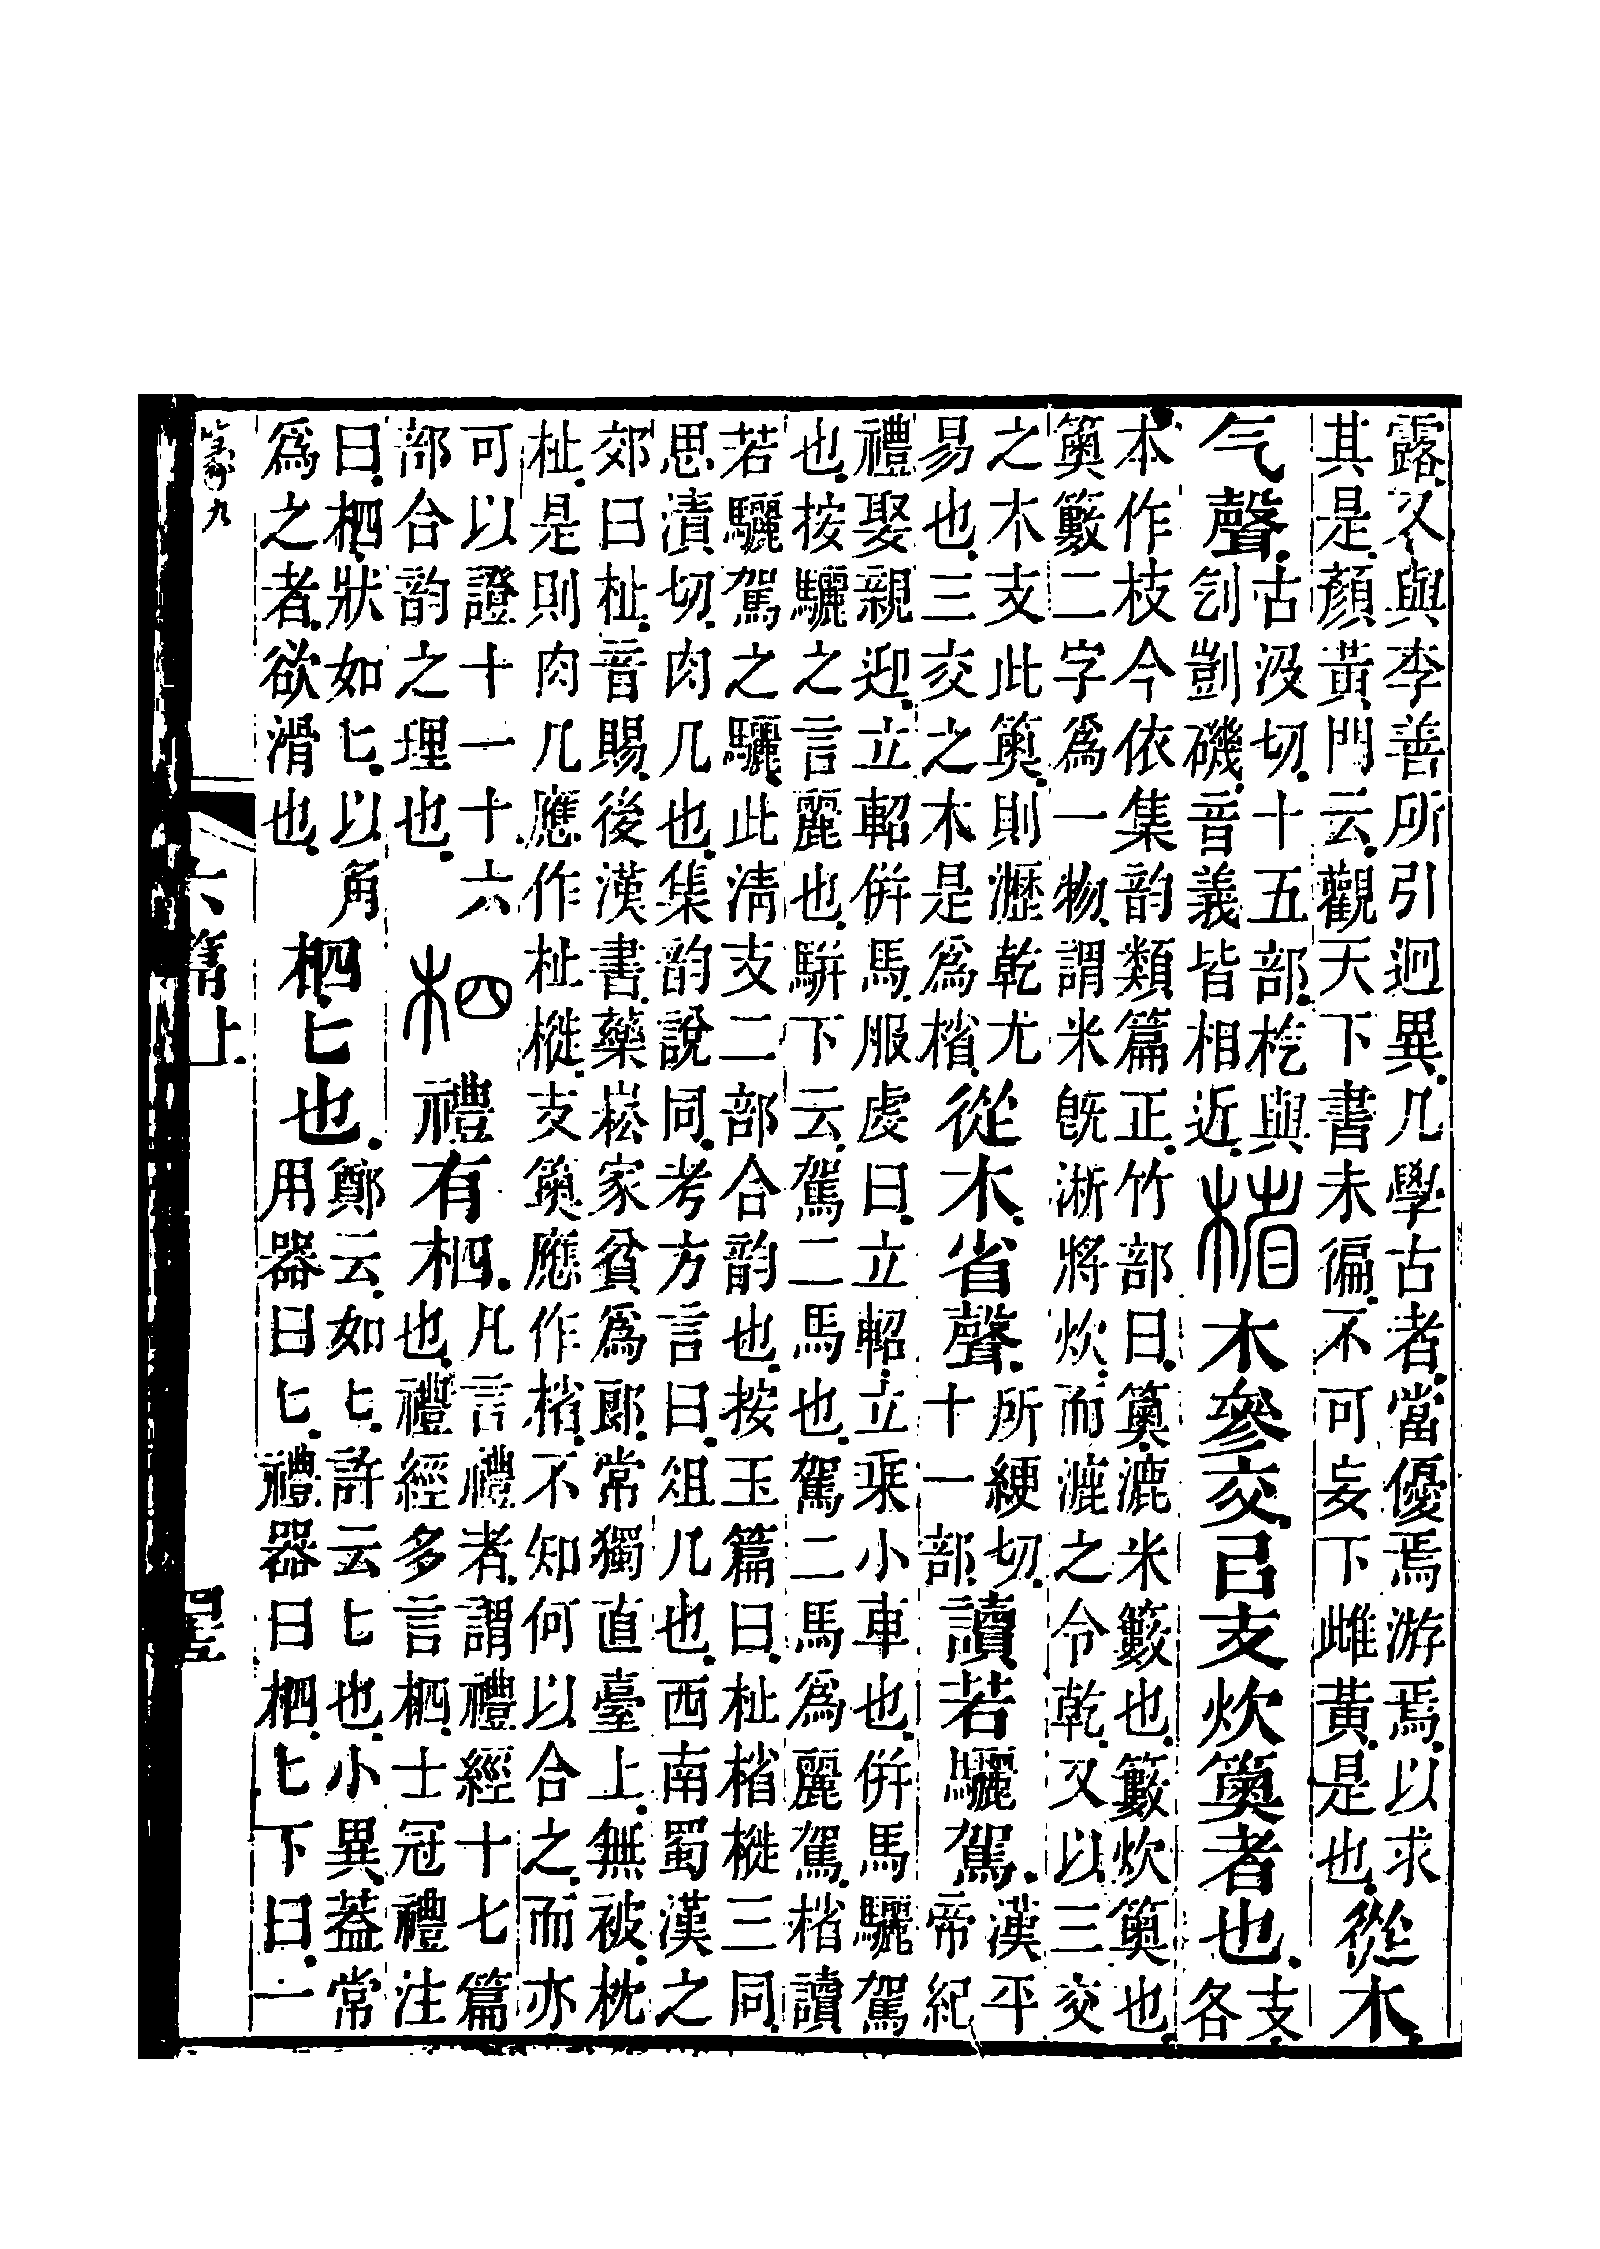 露又與李善所引迥異.凡學古者.當優焉游焉.以求
其是.顏黃門云.觀天下書未徧.不可妄下雌黃.是也.
從木.
气聲.
古汲切.十五部.杚與
刉剴磯.音義皆相近.
㮐 木參交㠯支炊䉛者也.
支.
各
本作枝今依集韵類篇正.竹部曰.䉛.漉米籔也.籔炊䉛也.
䉛籔二字爲一物.謂米旣淅將炊.而漉之令乾.又以三交
之木支此䉛.則瀝乾尤
易也.三交之木是爲㮐.
從木.省聲.
所綆切.
十一部.
讀若驪駕.
漢平
帝紀
禮娶親迎.立軺併馬.服虔曰.立軺.立乗小車也.併馬驪駕
也.按驪之言麗也.駢下云.駕二馬也.駕二馬爲麗駕.㮐讀
若驪駕之驪.此淸支二部合韵也.按玉篇曰.杫㮐樅三同.
思漬切.肉几也.集韵說同.考方言曰.俎几也.西南蜀漢之
郊曰杫.音賜.後漢書.藥崧家貧爲郞.常獨直臺上.無被.枕
杫.是則肉几應作杫樅.支䉛應作㮐.不知何以合之.而亦
可以證十一十六
部合韵之理也.
柶 禮有柶.
凡言禮者.謂禮經十七篇
也.禮經多言柶.士冠禮注
曰.柶.狀如匕.以角
爲之者.欲滑也.
柶.匕也.
鄭云.如匕.許云匕也.小異.葢常
用器曰匕.禮器曰柶.匕下曰.一
六篇上